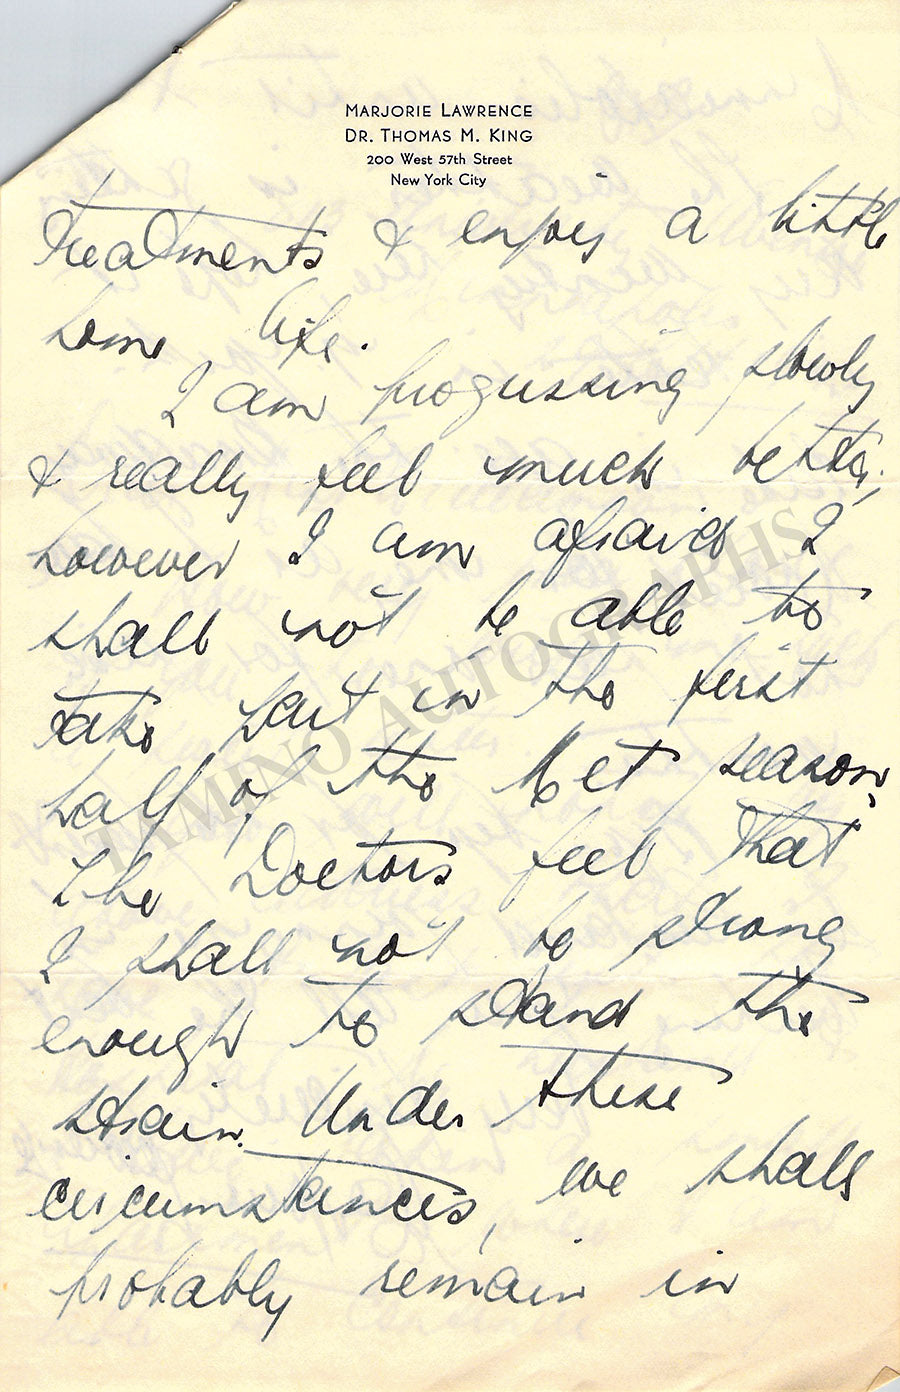 MARJORIE LAWRENCE
DR. THOMAS M. KING
200 West 57th Street
New York City
treatments & enjoy a little
home life.
I am progressing slowly
& really feel much better,
however I am afraid I
shall not be able to
take part in the first
half of the Met season,
the Doctors feel that
I shall not be strong
enough to stand the
strain. Under these
circumstances, we shall
probably remain in
TAMINO AUTOGRAPHS